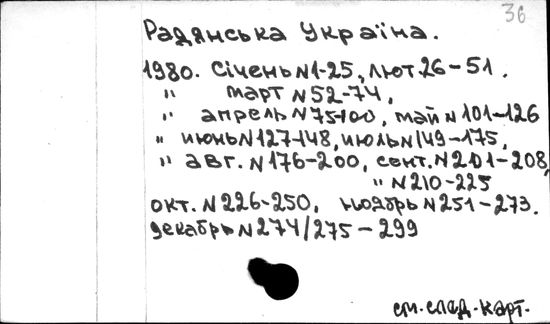 36
Радянська Україна.
1980. Січень N1-25, лют. 26-51.
" март N52-74,
" апрель N75-100, май N101-126
" июнь N127-148, июль N149-175,
" авг. N176-200, сент. N201-208,
" N210-225
окт. N226-250, ноябрь N251-273.
декабрь N274/275-299
см. след. карт.